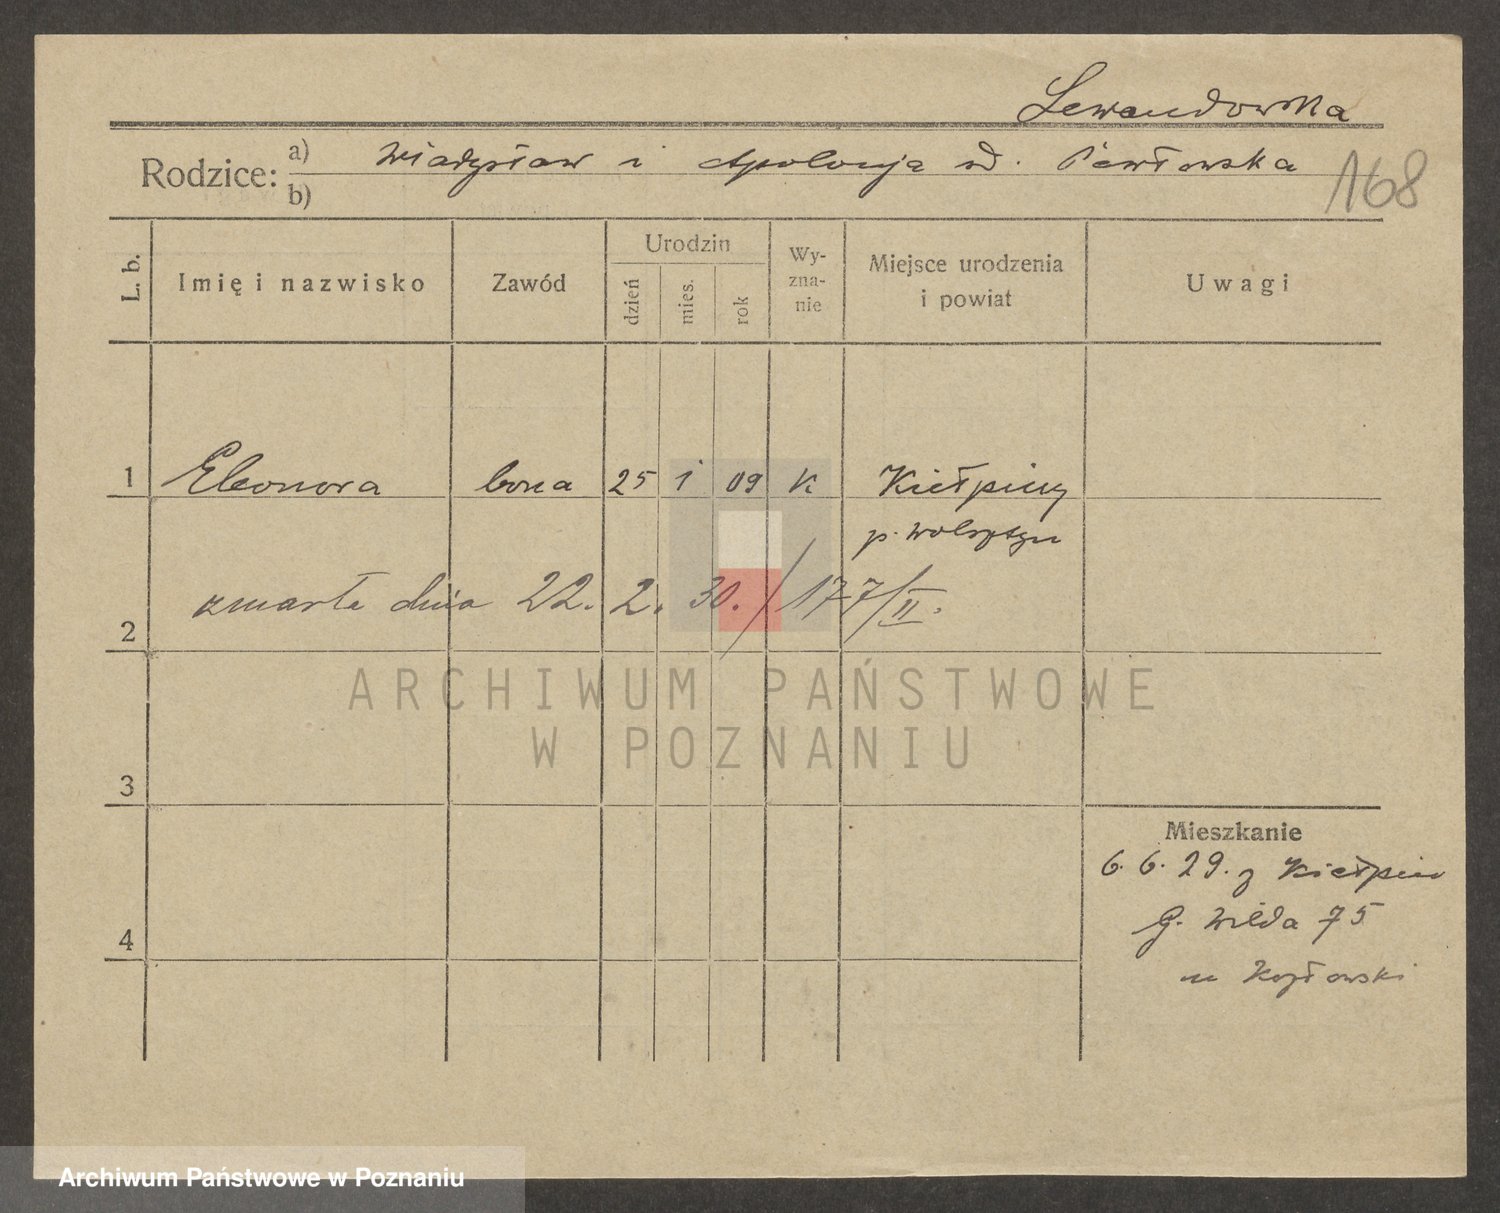 Lewandowska
Rodzice: a) Władysław i Apolonja d. Pawłowska
b)
168
L. b.
Imię i nazwisko
Zawód
Urodzin
dzień
mies.
rok
Wy-
zna-
nie
Miejsce urodzenia
i powiat
Uwagi
1 Eleonora bona 25 1 09 K Kiełpiny
p. Wolsztyn
2 zmarła dnia 22. 2. 30. / 177/II.
ARCHIWUM PAŃSTWOWE
W POZNANIU
3
Mieszkanie
6. 6. 29. z Kiełpin
G. Wilda 75
u Kozłowski
4
Archiwum Państwowe w Poznaniu